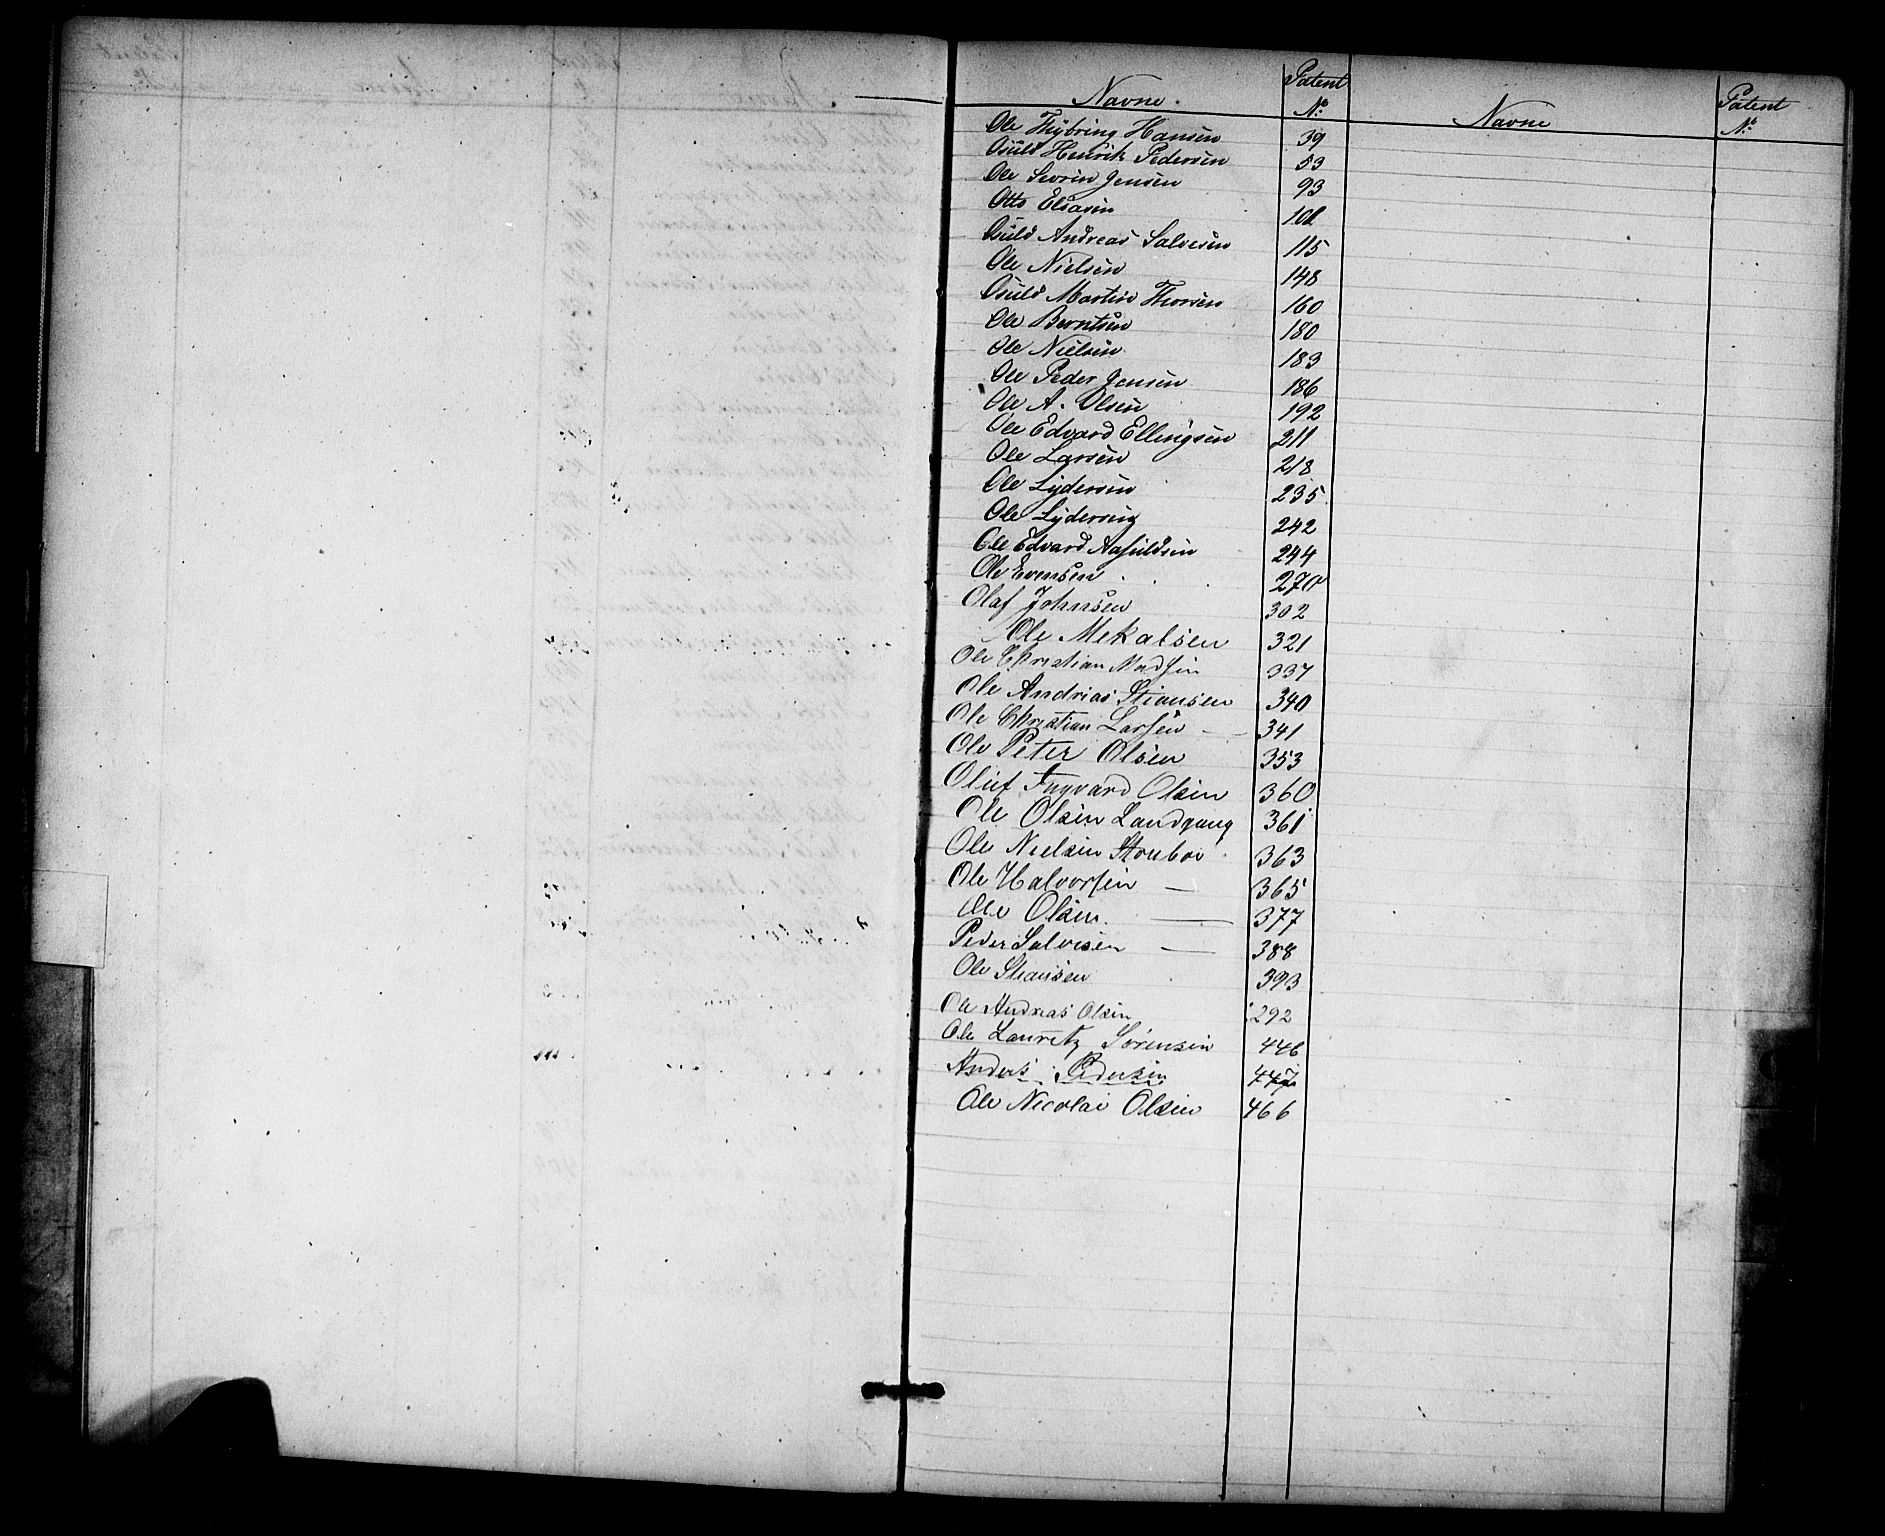 Navne. Patent Nº Navne Patent Nº
Ole Thybring Hansen 39
Osuld Henrik Pedersen 53
Ole Sevrin Jensen 93
Otto Eliasen 102
Osuld Andreas Salvesen 115
Ole Nielsen 148
Osuld Martin Thorsen 160
Ole Berntsen 180
Ole Nielsen 183
Ole Peder Jensen 186
Ole A. Olsen 192
Ole Edvard Ellingsen 211
Ole Larsen 218
Ole Lydersen 235
Ole Lydersen 242
Ole Edvard Aasuldsen 244
Ole Evensen 270
Olaf Johnsen 302
Ole Mekalsen 321
Ole Christian Madsen 337
Ole Andrias Stiansen 340
Ole Christian Larsen 341
Ole Peter Olsen 353
Oluf Ingvard Olsen 360
Ole Olsen Landgang 361
Ole Nielsen 363
Ole Halvorsen 365
Ole Olsen 377
Peder Salvesen 388
Ole Stiansen 393
Ole Andreas Olsen 292
Ole Lauretz Sørensen 446
Anders Pedersen 447
Ole Nicolai Olsen 466